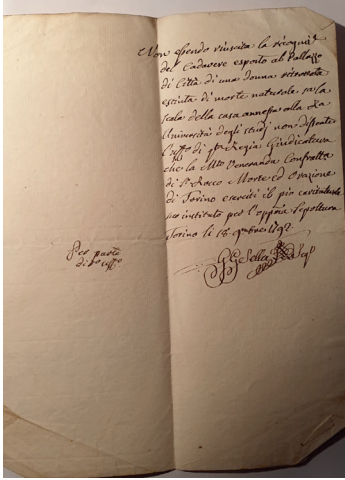 Non essendo riuscita la recogniz.e
del Cadavere esposto al Pallazzo
di Città di una donna ritrovata
estinta di morte naturale sa la
scala della casa annessa alla Ra
Università degli studj non dissente
l'uffo di qta Regia Giudicatura
che la Mto Veneranda Confratta
di St Rocco Morte ed Orazione
di Torino eserciti il pio caritatevole
suo instituto per l'oppna Sepoltura
Torino li 18 9mbre 1792
Per parte
di do uffo